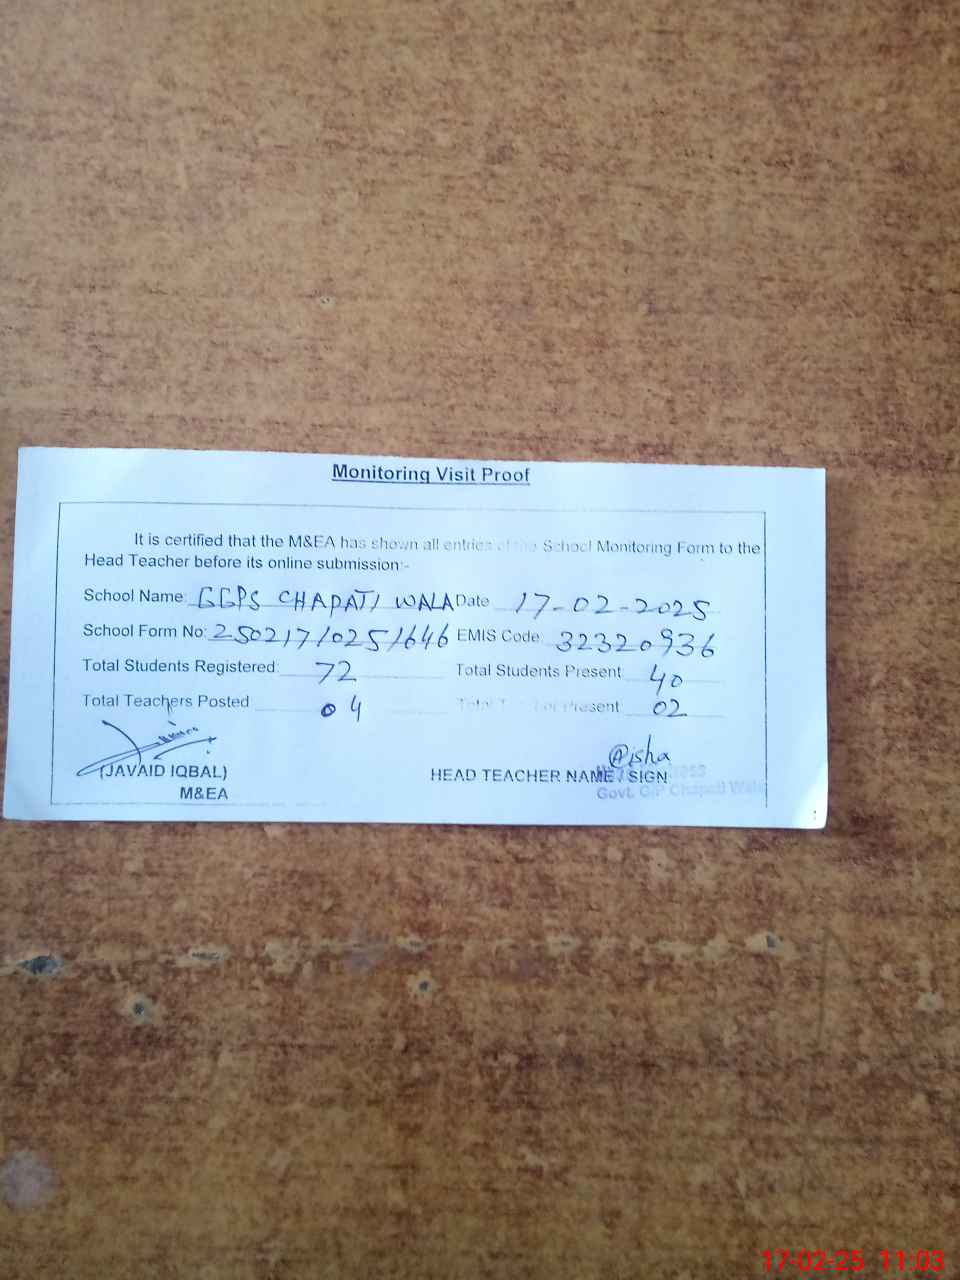 Monitoring Visit Proof
It is certified that the M&EA has shown all entries of the School Monitoring Form to the
Head Teacher before its online submission:-
School Name: GGPS CHAPATI WALA Date 17-02-2025
School Form No: 25021710251646 EMIS Code: 32320936
Total Students Registered: 72 Total Students Present 40
Total Teachers Posted 04 Total Present 02
Aisha
(JAVAID IQBAL) HEAD TEACHER NAME / SIGN
M&EA Govt. G/P Chapati Wala
17-02-25 11:03